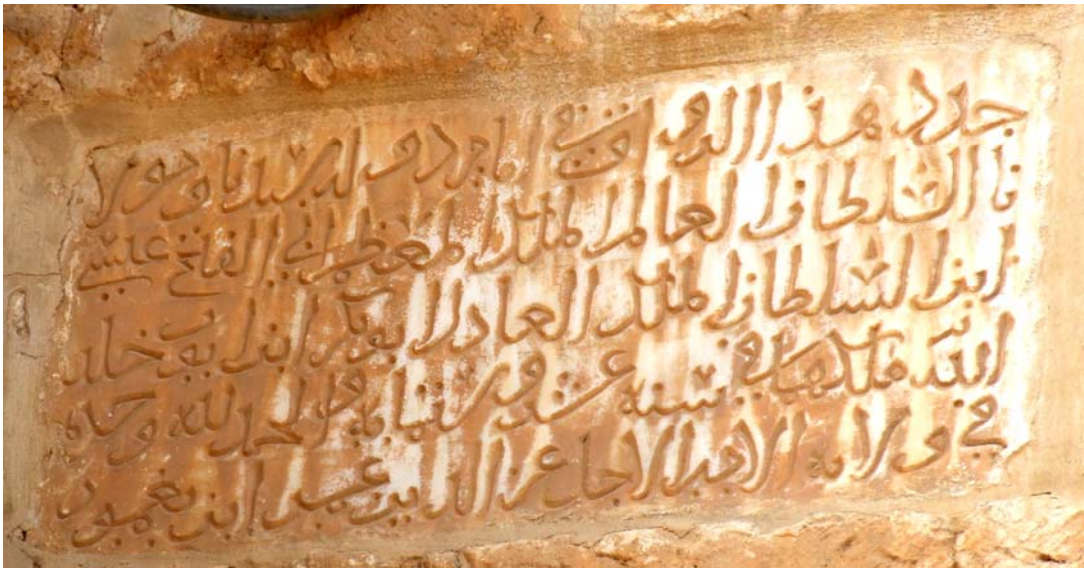 جدد هذا الرواق في ايام دولة سيدنا ومولا
نا السلطان العالم الملك المعظم ابي الفتح عيسى
ابن السلطان الملك العادل ابو بكر ابن ايوب خلد
الله ملكهما في سنة عشر وستمائة والحمد لله وحده
في ولاية الامير الاجل عز الدين عمر ابن يغمور